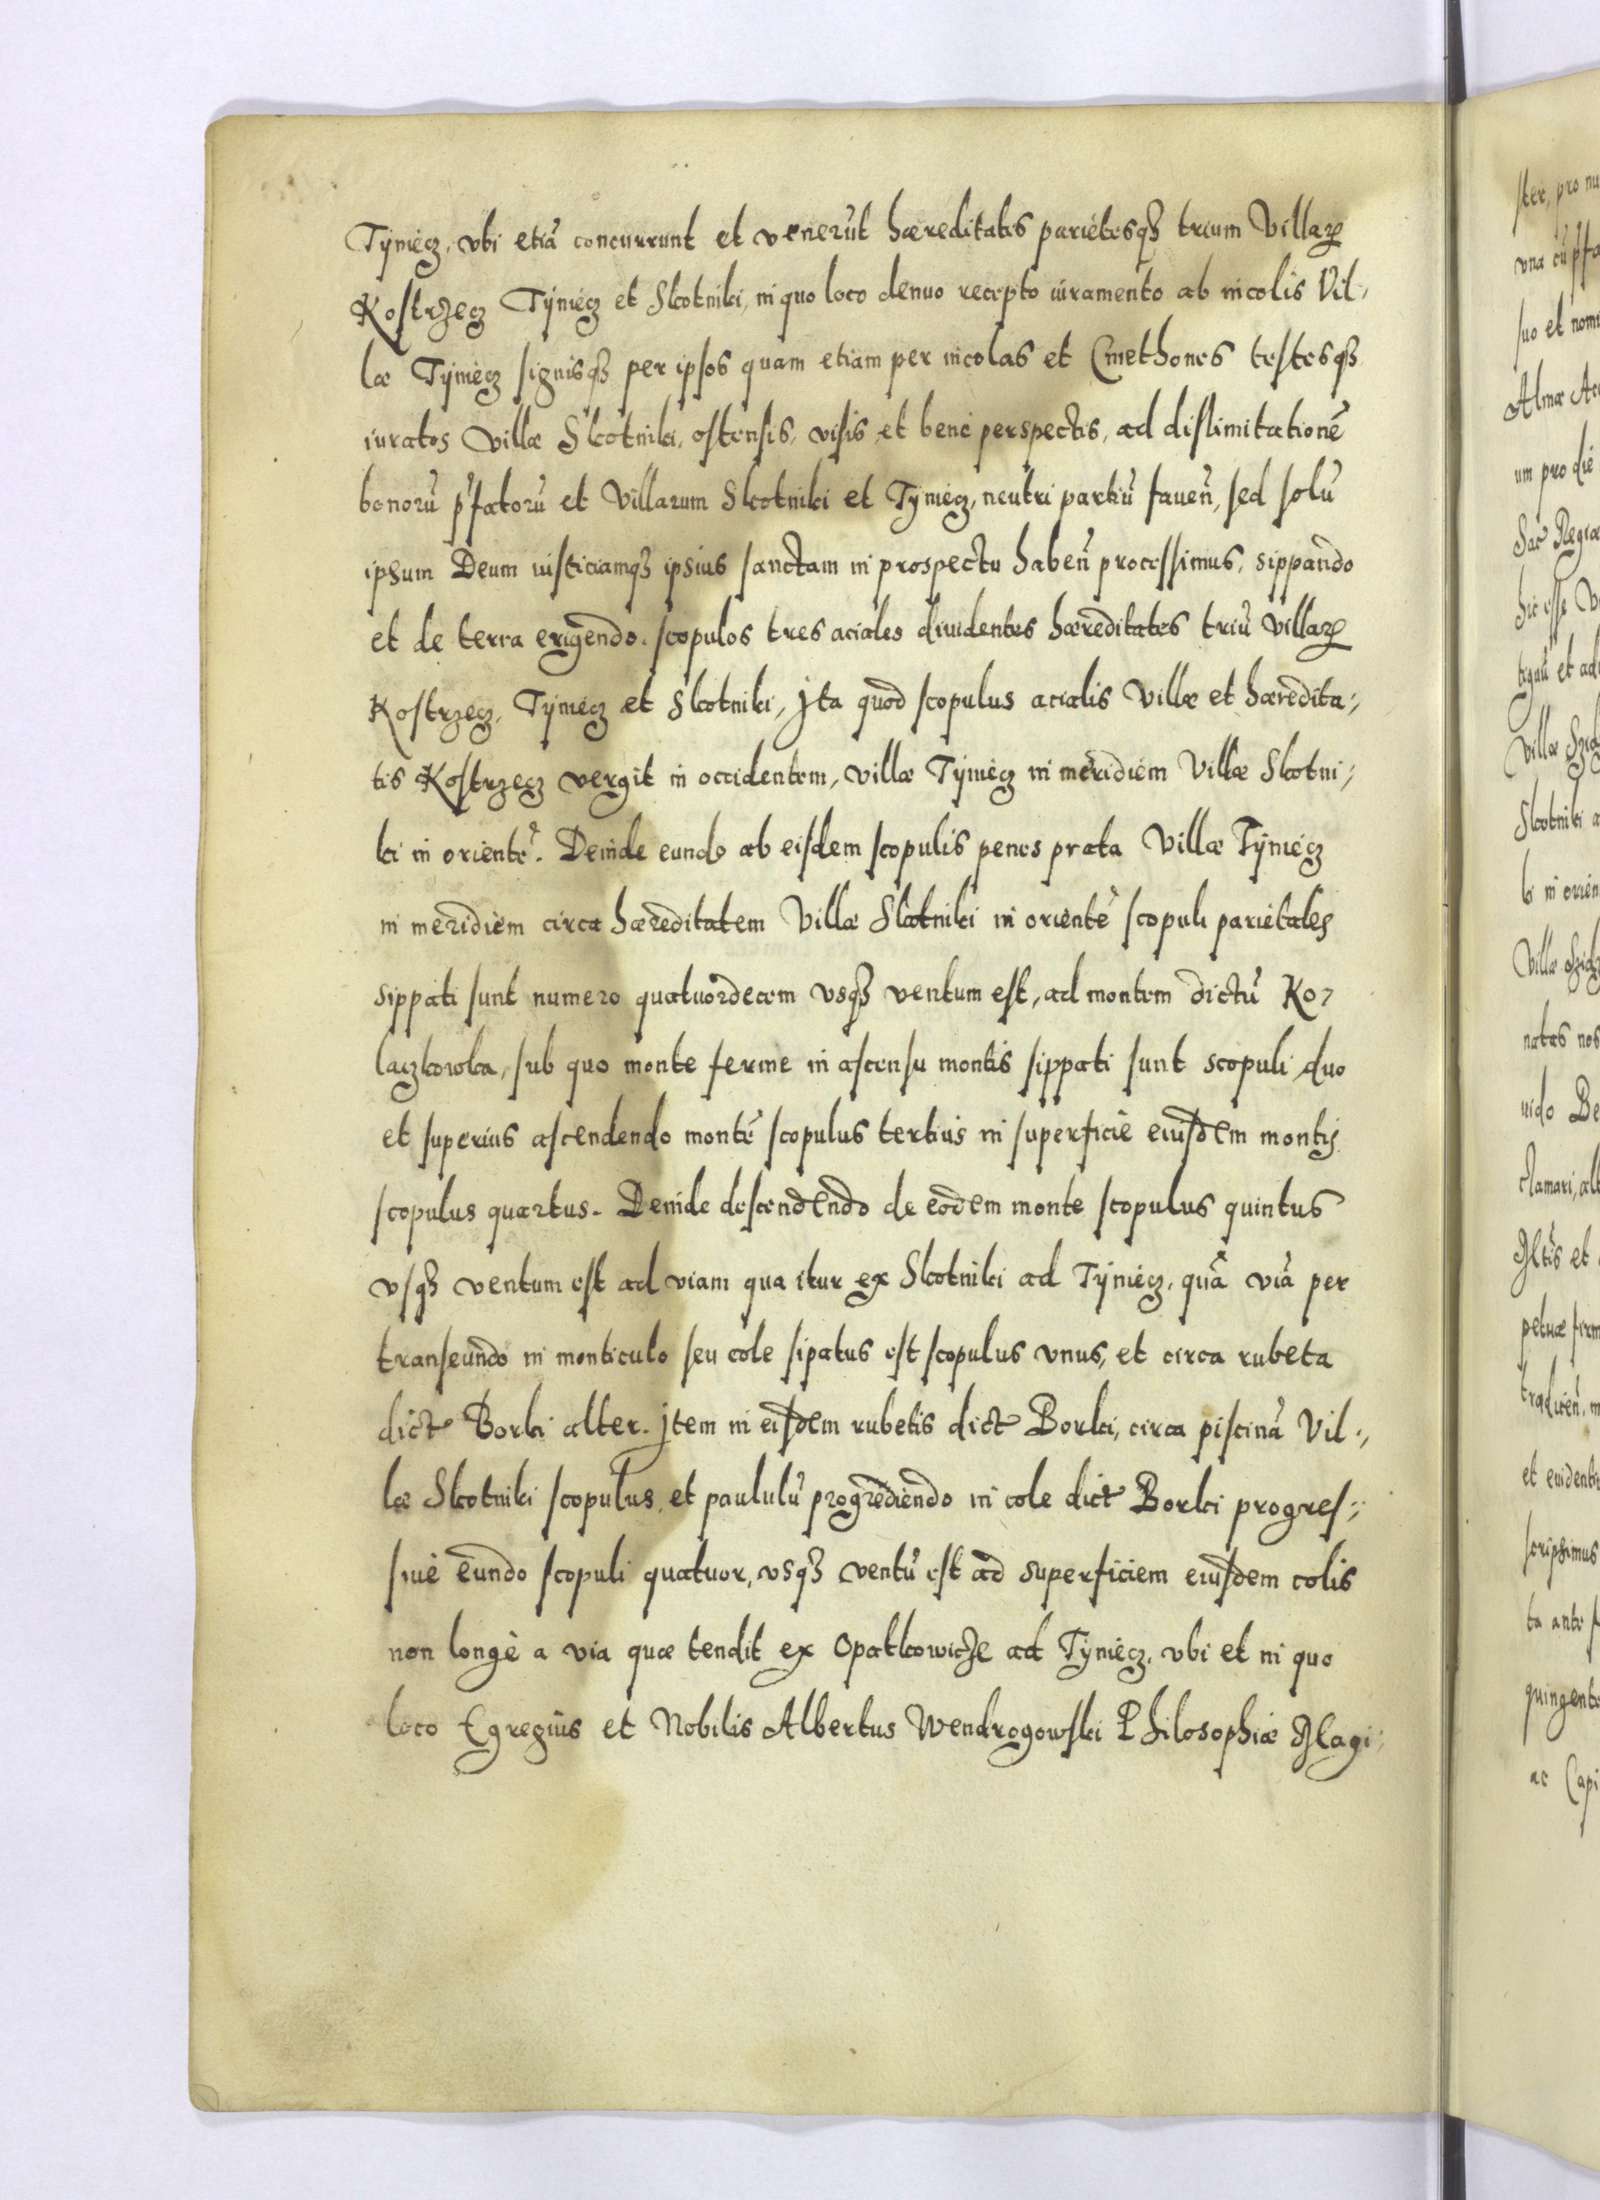 Tÿniecz, vbi etiã concurrunt et venerũt hæreditates parietesqȝ trium Villaꝝ
Kostrzecz Tÿniecz et Skotniki, in quo loco denuo recepto iuramento ab incolis Vil-,
læ Tÿniecz signisqȝ per ipsos quam etiam per incolas et Cmethones testesqȝ
iuratos Villæ Skotniki, ostensis, visis et bene perspectis, ad dislimitationẽ
bonorũ p̃fatorũ et Villarum Skotniki et Tÿniecz, neutri partiũ faueñ, sed solũ
ipsum Deum iusticiamqȝ ipsius sanctam in prospectu habeñ processimus, sippando
et de terra erigendo. scopulos tres aciales diuidentes hæreditates triũ Villaꝝ
Kostrzecz, Tÿniecz et Skotniki, Jta quod scopulus acialis Villæ et hæredita-,
tis Kostrzecz vergit in occidentem, villæ Tÿniecz in meridiem Villæ Skotni-,
ki in orientẽ. Deinde eundo ab eisdem scopulis penes prata Villæ Tÿniecz
in meridiem circa hæreditatem Villæ Skotniki in orientẽ scopuli parietales
sippati sunt numero quatuordecem vsqȝ ventum est, ad montem dictũ Ko-
laczkowka, sub quo monte ferme in ascensu montis sippati sunt scopuli duo
et superius ascendendo montẽ scopulus tertius in superficie eiusdem montis
scopulus quartus. Deinde descendendo de eodem monte scopulus quintus
vsqȝ ventum est ad viam qua itur ex Skotniki ad Tÿniecz, quã viã per
transeundo in monticulo seu cole sipatus est scopulus vnus, et circa rubeta
dict Borki alter. Jtem in eisdem rubetis dict Borki, circa piscinã Vil-,
læ Skotniki scopulus, et paululũ progrediendo in cole dict Borki progres-,
siuè eundo scopuli quatuor, vsqȝ ventũ est ad superficiem eiusdem colis
non longè a via quæ tendit ex Opatkowicze ad Tÿniecz, vbi et in quo
loco Egregius et Nobilis Albertus Wendrogowski Philosophiæ Magi-,
ster, pro nu
vna cũ
suo et nomi
Almæ Ac
um pro die
Sac Regiæ
hic esse V
et ad
Villæ
Skotniki a
ki in orien
Villæ
nates nos
uido Be
clamari, alt
et
petuæ firm
et euidenti
scripsimus
ta ante
quingento
ac Capi